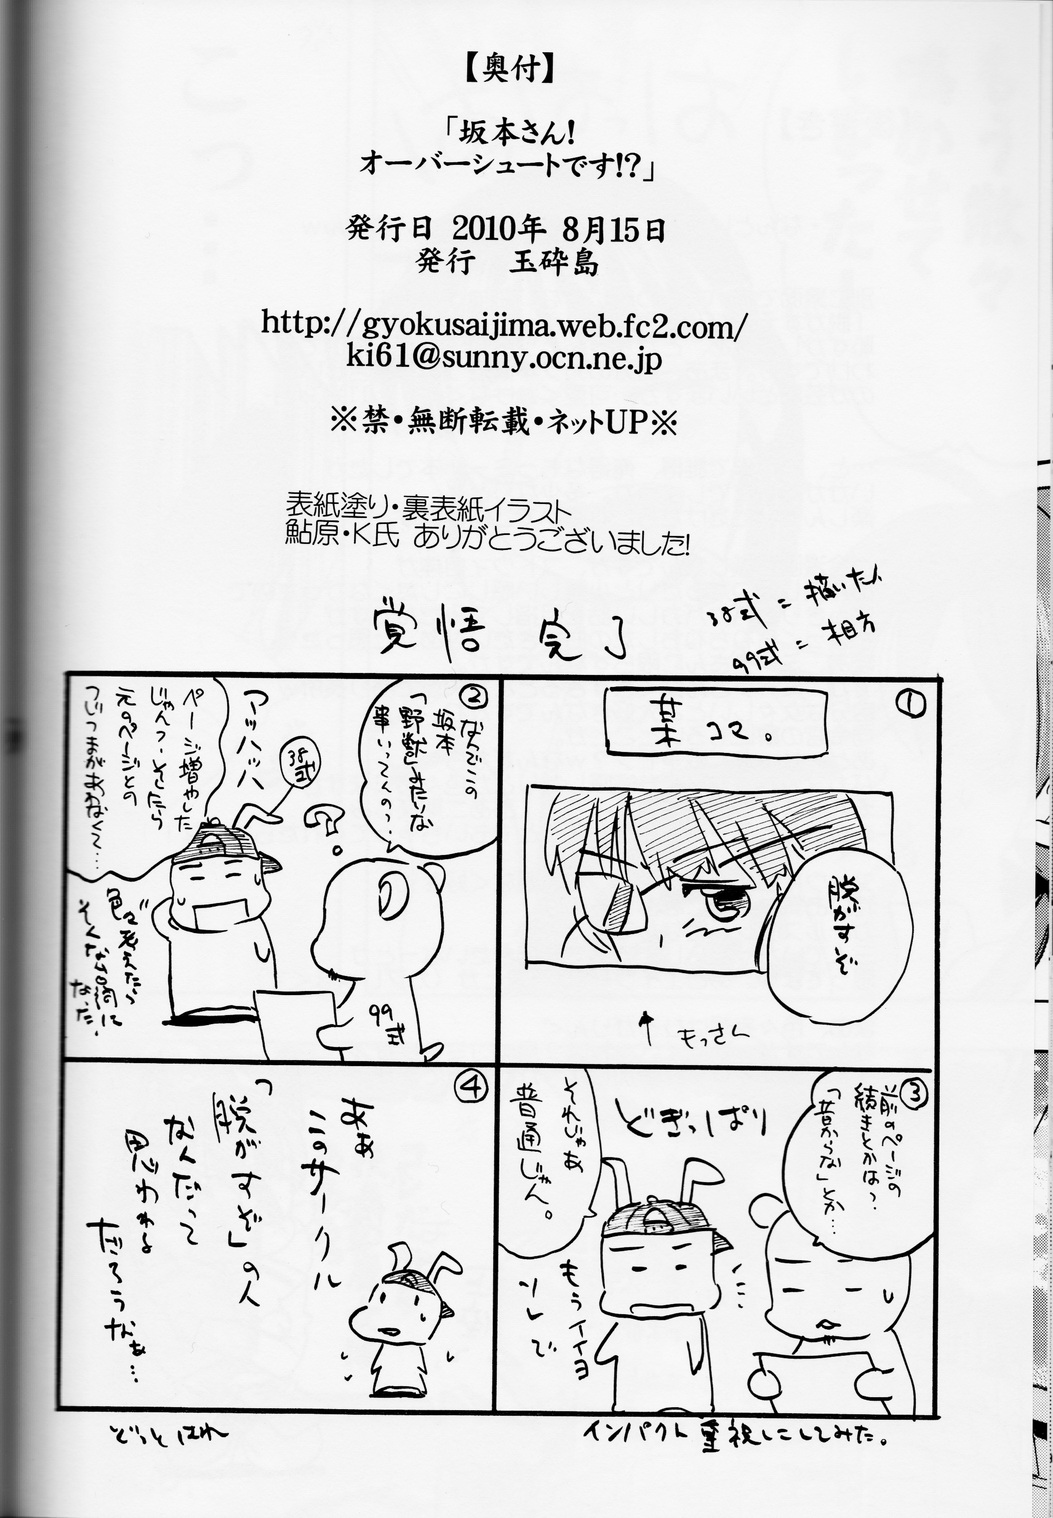 【奥付】
「坂本さん!
オーバーシュートです!?」
発行日 2010年 8月15日
発行 玉砕島
http://gyokusaijima.web.fc2.com/
ki61@sunny.ocn.ne.jp
※禁・無断転載・ネットUP※
表紙塗り・裏表紙イラスト
鮎原・K氏 ありがとうございました!
覚悟 完了
38式=描いた人
99式=相方
①
葉コマ。
脱がすぞ
もっさん
②
なんでこの
坂本
「野獣」みたいな
事いってんの?
?
38式
アッハッハ
ページ増やした
じゃんっ・そしたら
元のページとの
つじつまがあわなくて…
色々考えたら
そんな台詞に
なった。
99式
③
前のページの
続きとかは?
「昔からな」とか…
どきっぱり
それじゃあ
普通じゃん。
もうイイヨ
ソレで
④
ああ
このサークル
「脱がすぞ」の人
なんだって
思われる
だろうなぁ…
インパクト重視にしてみた。
どっとはれ